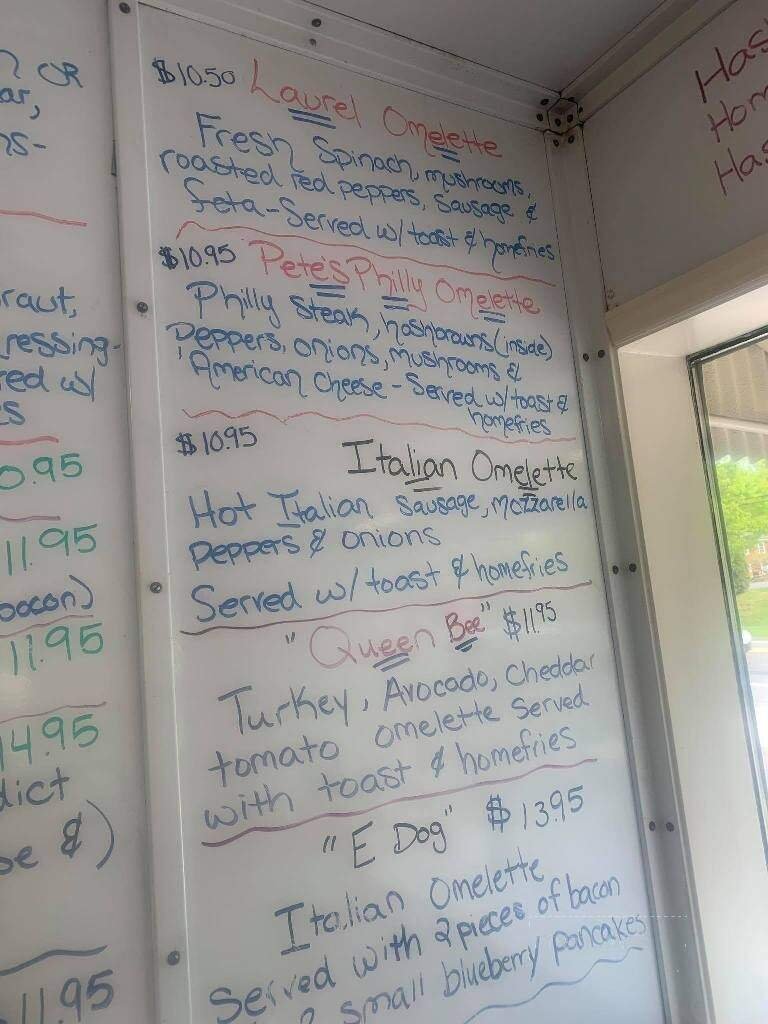 OR
$10.50 Laurel Omelette
Fresh Spinach, mushrooms,
roasted red peppers, Sausage &
feta - Served w/ toast & homefries
$10.95 Pete's Philly Omelette
Philly Steak, hashbrowns (inside)
Peppers, onions, mushrooms &
American Cheese - Served w/ toast &
homefries
$10.95
Italian Omelette
Hot Italian Sausage, mozzarella
Peppers & onions
Served w/ toast & homefries
"Queen Bee" $11.95
Turkey, Avocado, Cheddar
tomato omelette Served
with toast & homefries
"E Dog" $13.95
Italian Omelette
Served with 2 pieces of bacon
2 small blueberry pancakes
raut,
ressing-
red w/
0.95
11.95
bacon)
11.95
14.95
dict
&)
11.95
Has
Hom
Has